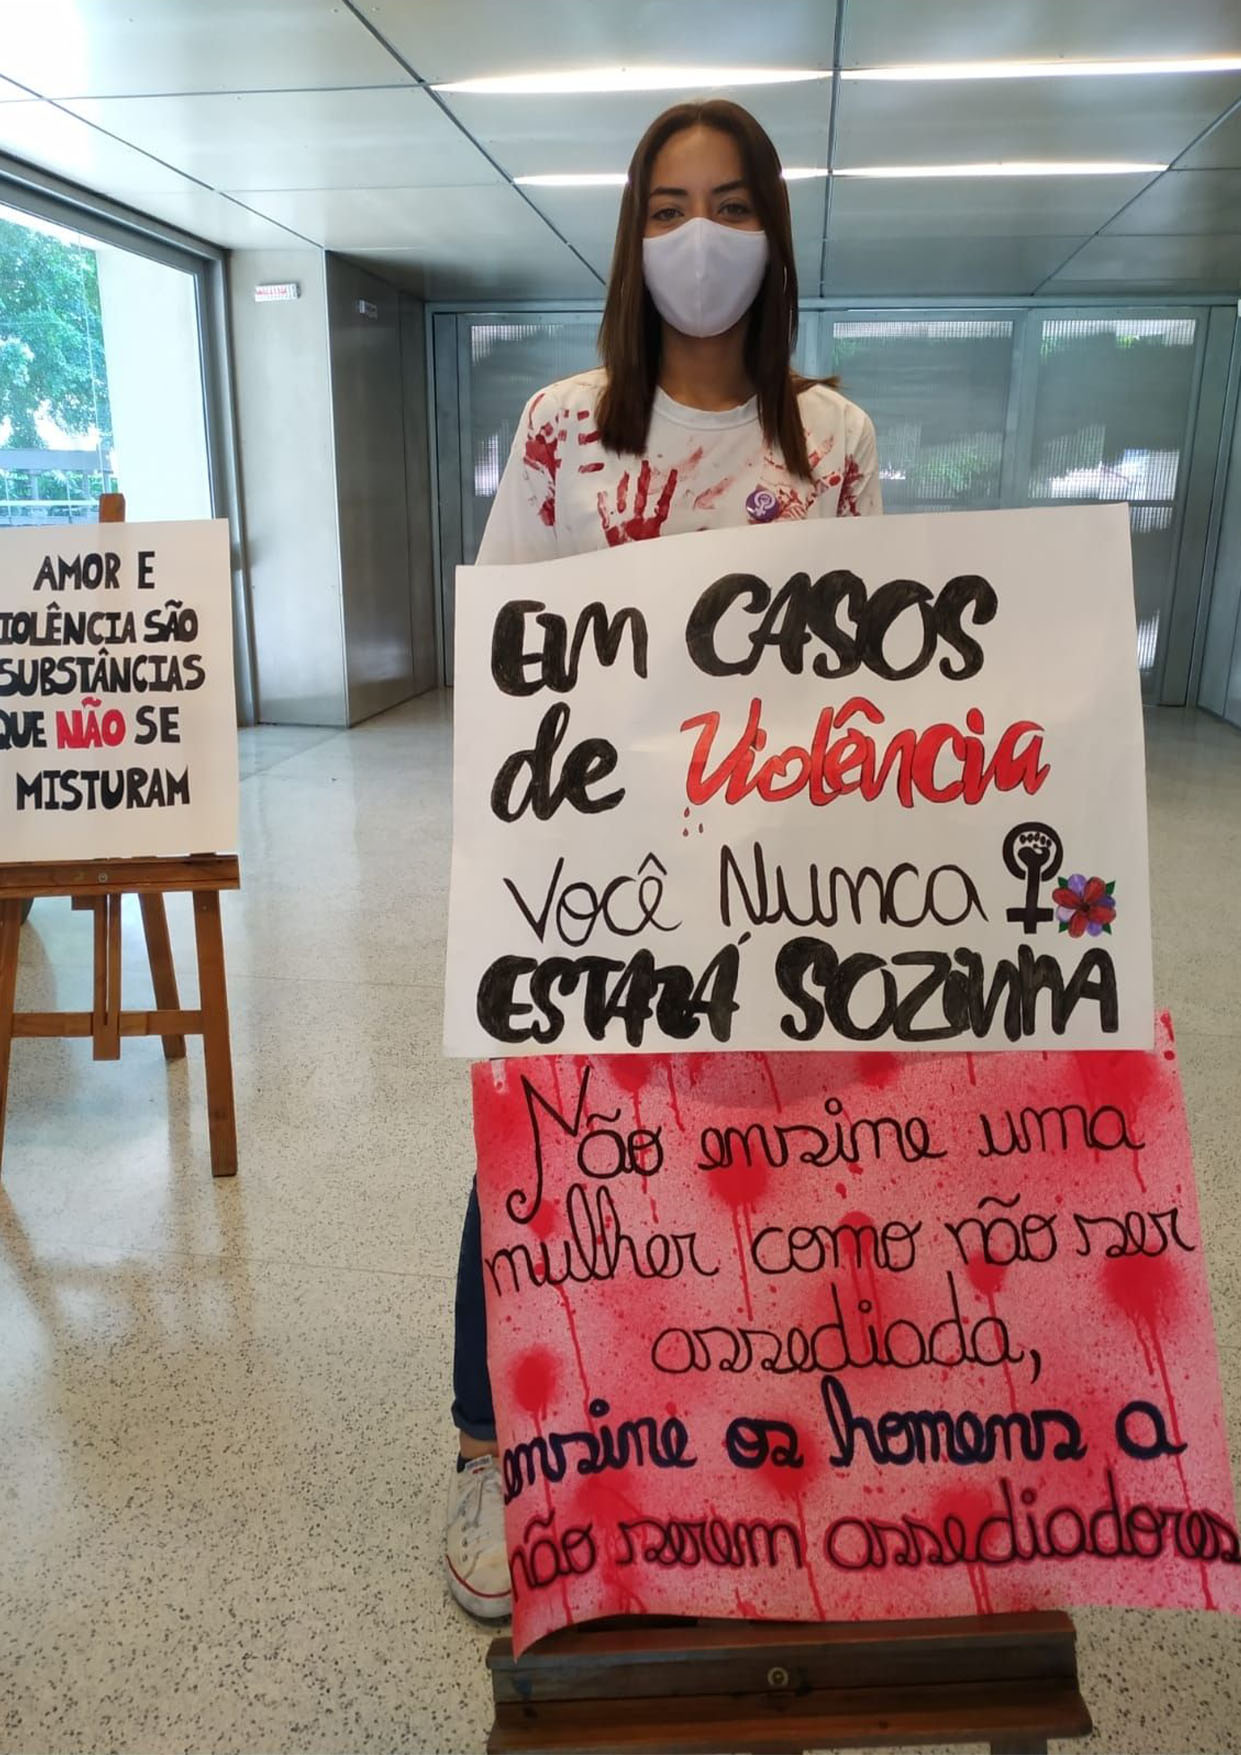 AMOR E
VIOLÊNCIA SÃO
SUBSTÂNCIAS
QUE NÃO SE
MISTURAM
EM CASOS
de Violência
Você Nunca
ESTARÁ SOZINHA
Não ensine uma
mulher como não ser
assediada,
ensine os homens a
não serem assediadores